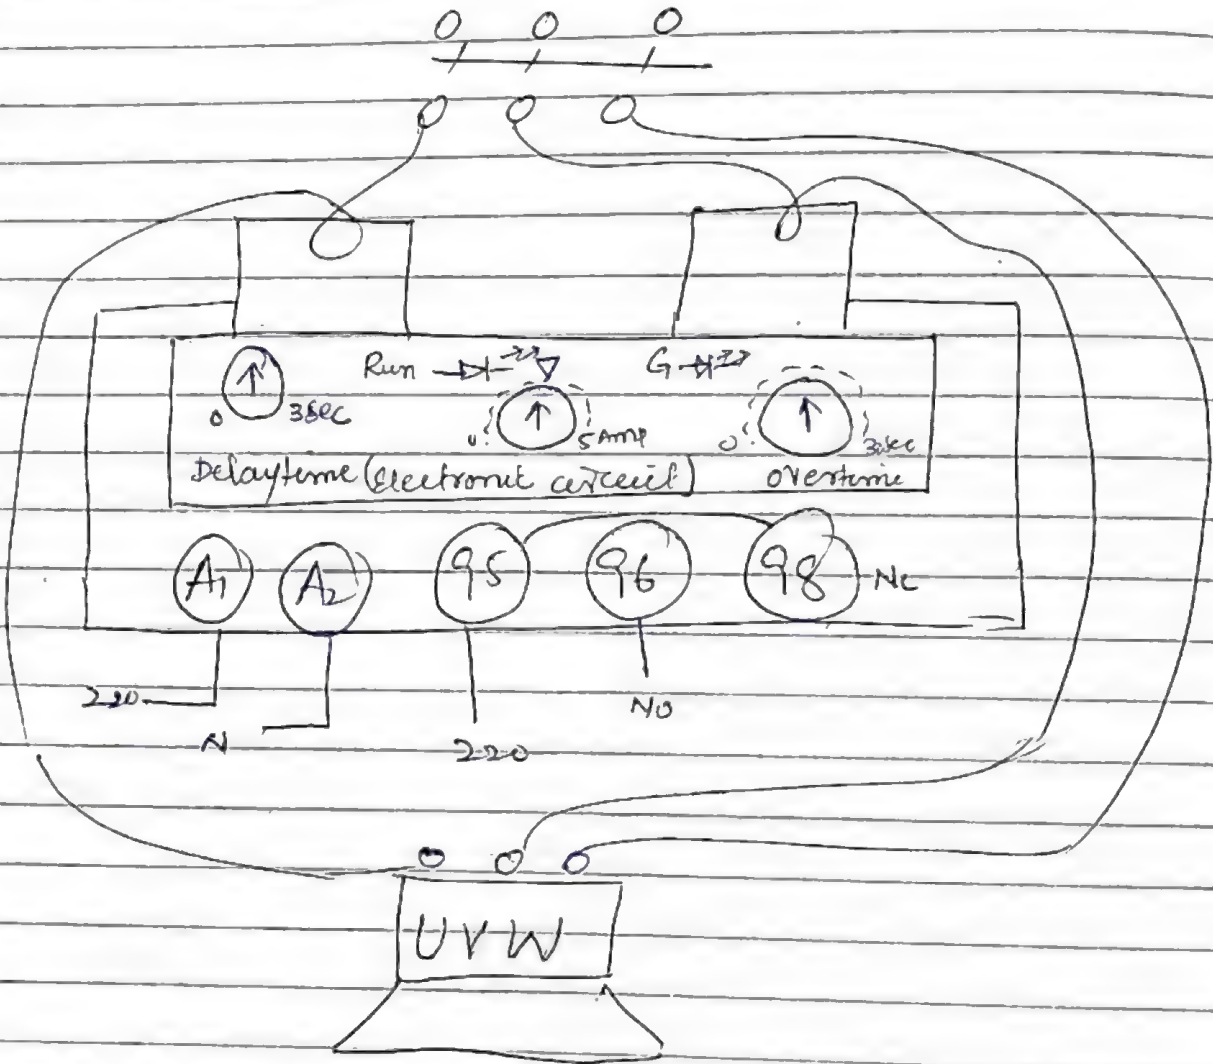 Run G
0 3sec 0 5 Amp 0 30sec
Delaytime (Electronic circuit) overtime
A1 A2 95 96 98 NC
220 NO
N 220
U V W